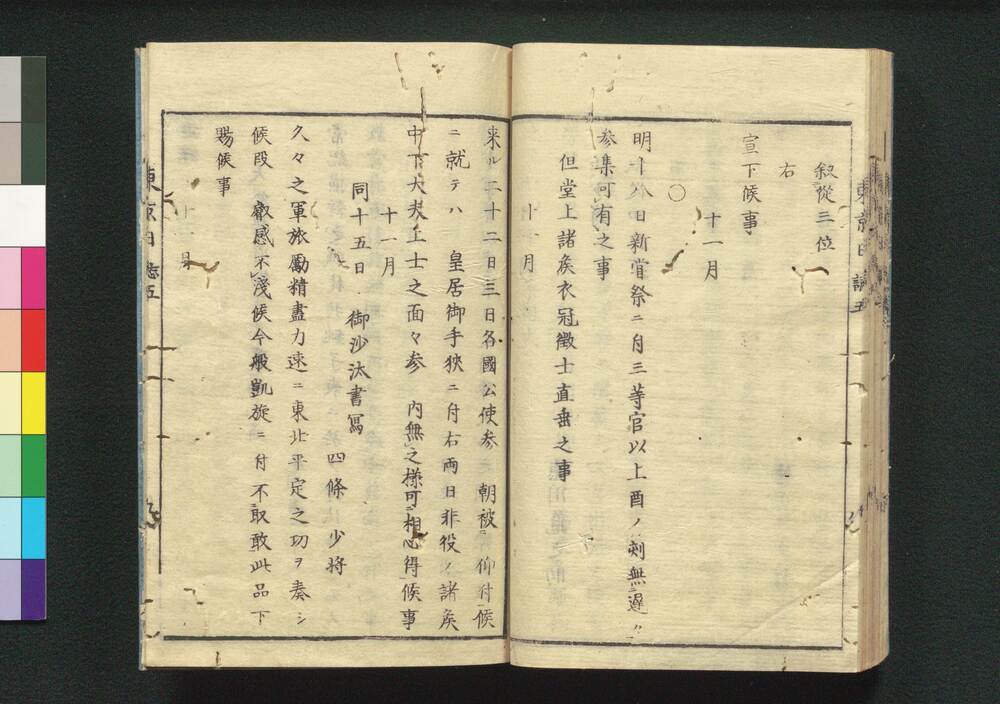 叙從三位
右
宣下候事
十一月
○
明十八日新嘗祭ニ付三等官以上酉ノ刻無遅々
参集可有之事
但堂上諸矦衣冠徴士直垂之事
十一月
来ル二十二日三日各國公使参 朝被 仰付候
ニ就テハ 皇居御手狭ニ付右両日非役ノ諸矦
中下大夫上士之面々参 内無之様可相心得候事
十一月
同十五日 御沙汰書寫
四條少将
久々之軍旅勵精盡力速ニ東北平定之功ヲ奏シ
候段 叡感不淺候今般凱旋ニ付不取敢此品下
賜候事